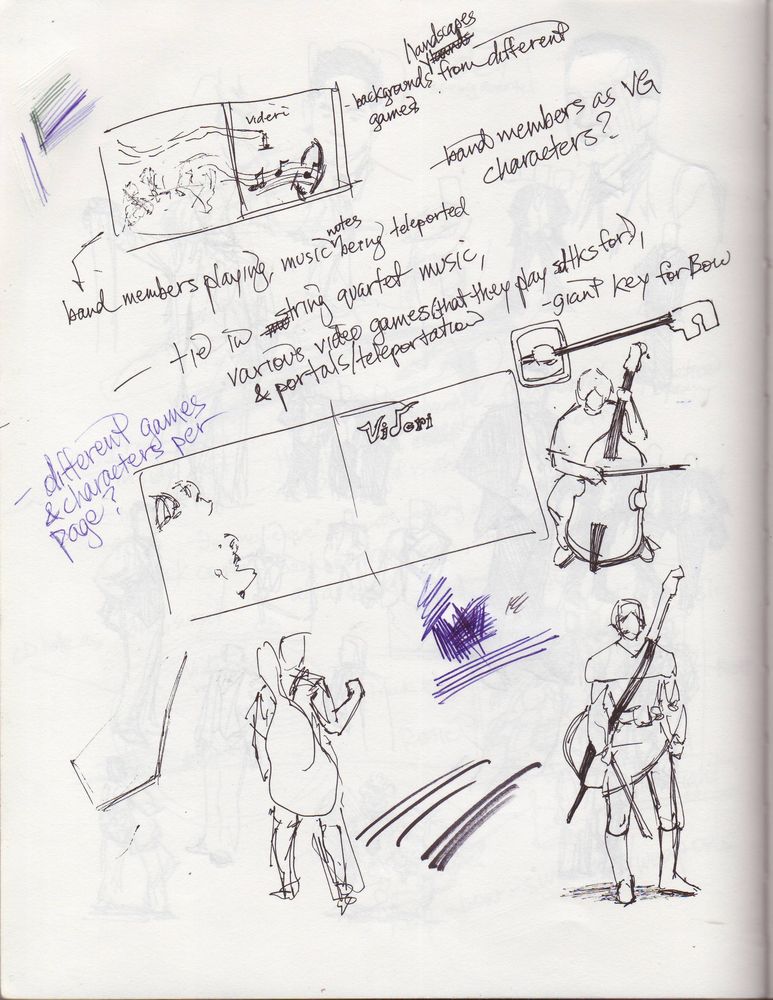 landscapes
- backgrounds from different
games
videri
- band members as VG
characters?
notes
band members playing, music being teleported
- tie in string quartet music,
various video games (that they play sdtks for),
& portals/teleportation
- giant key for Bow
- different games
& characters per
page?
Videri